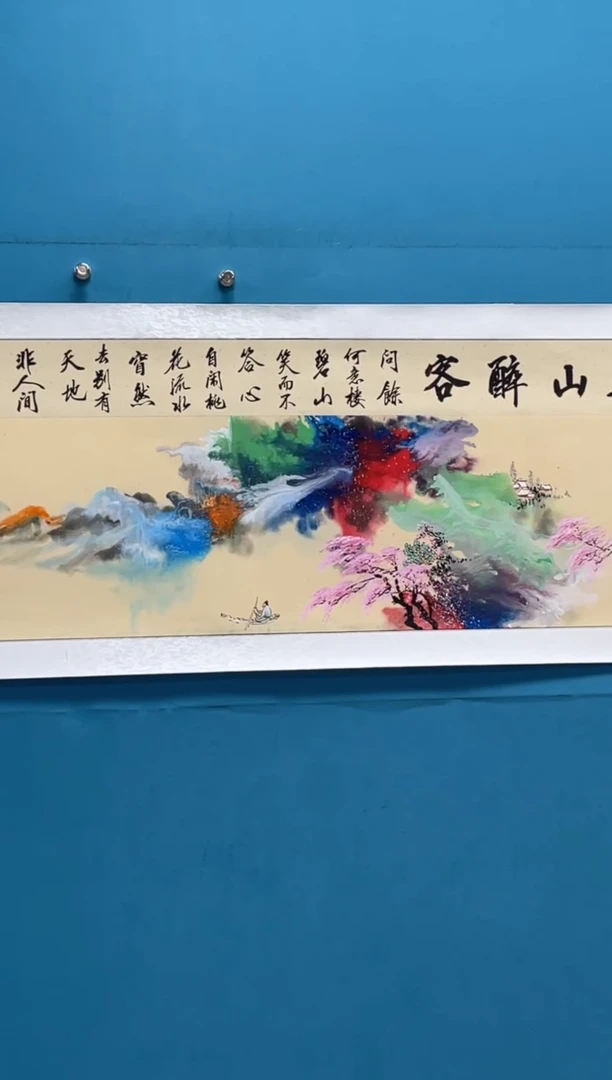 山醉客
問餘
何意棲
碧山
笑而不
答心
自閑桃
花流水
窅然
去別有
天地
非人間